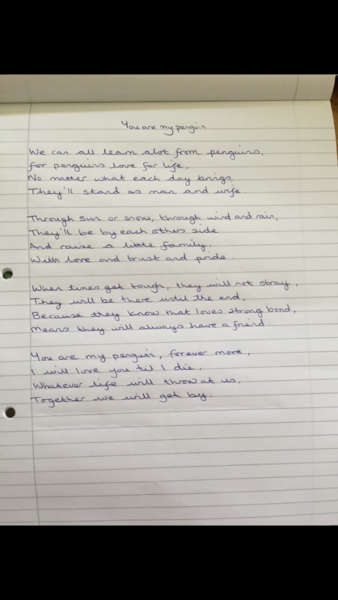 You are my penguin
We can all learn alot from penguins,
For penguins love for life,
No matter what each day brings,
They'll stand as man and wife
Through sun or snow, through wind and rain,
They'll be by each others side
And raise a little family,
With love and trust and pride.
When times get tough, they will not stray,
They will be there until the end,
Because they know that loves strong bond,
Means they will always have a friend.
You are my penguin, forever more,
I will love you til I die,
Whatever life will throw at us,
Together we will get by.